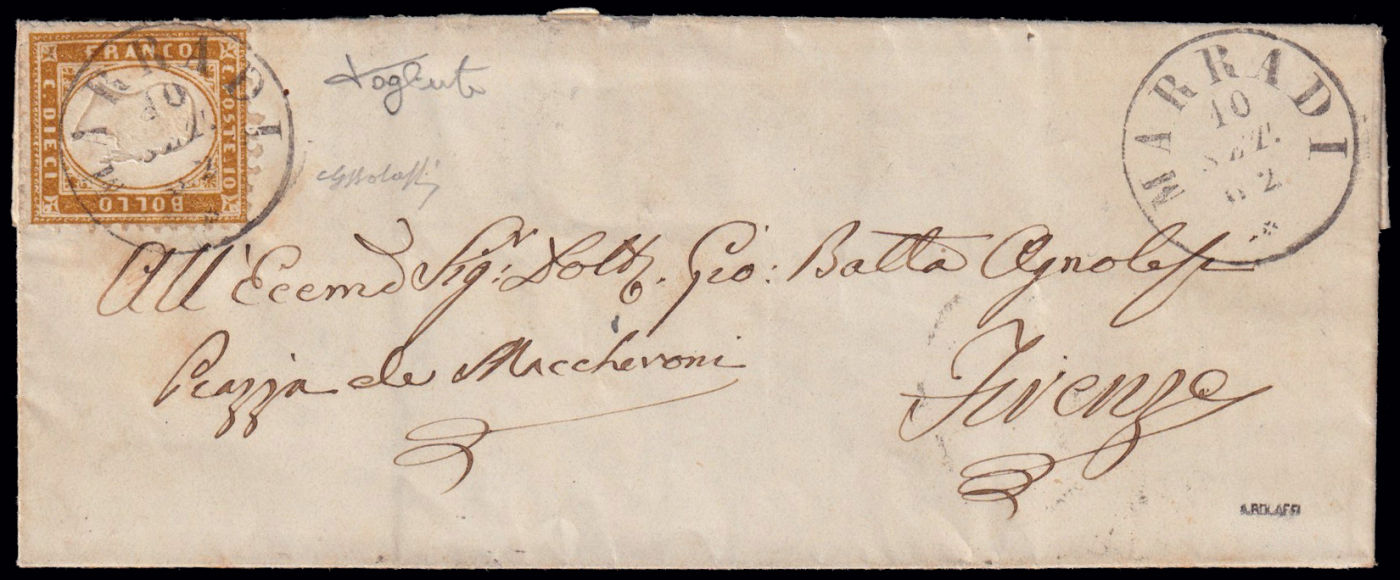 FRANCO
C. POSTE 10
BOLLO
C. DIECI
MARRADI
10
SET.
MARRADI
10
SET.
62
All' Ecemo Sigr. Dottr. Gio: Batta Agnolesi
Piazza de Maccheroni
Firenze
A.BOLAFFI